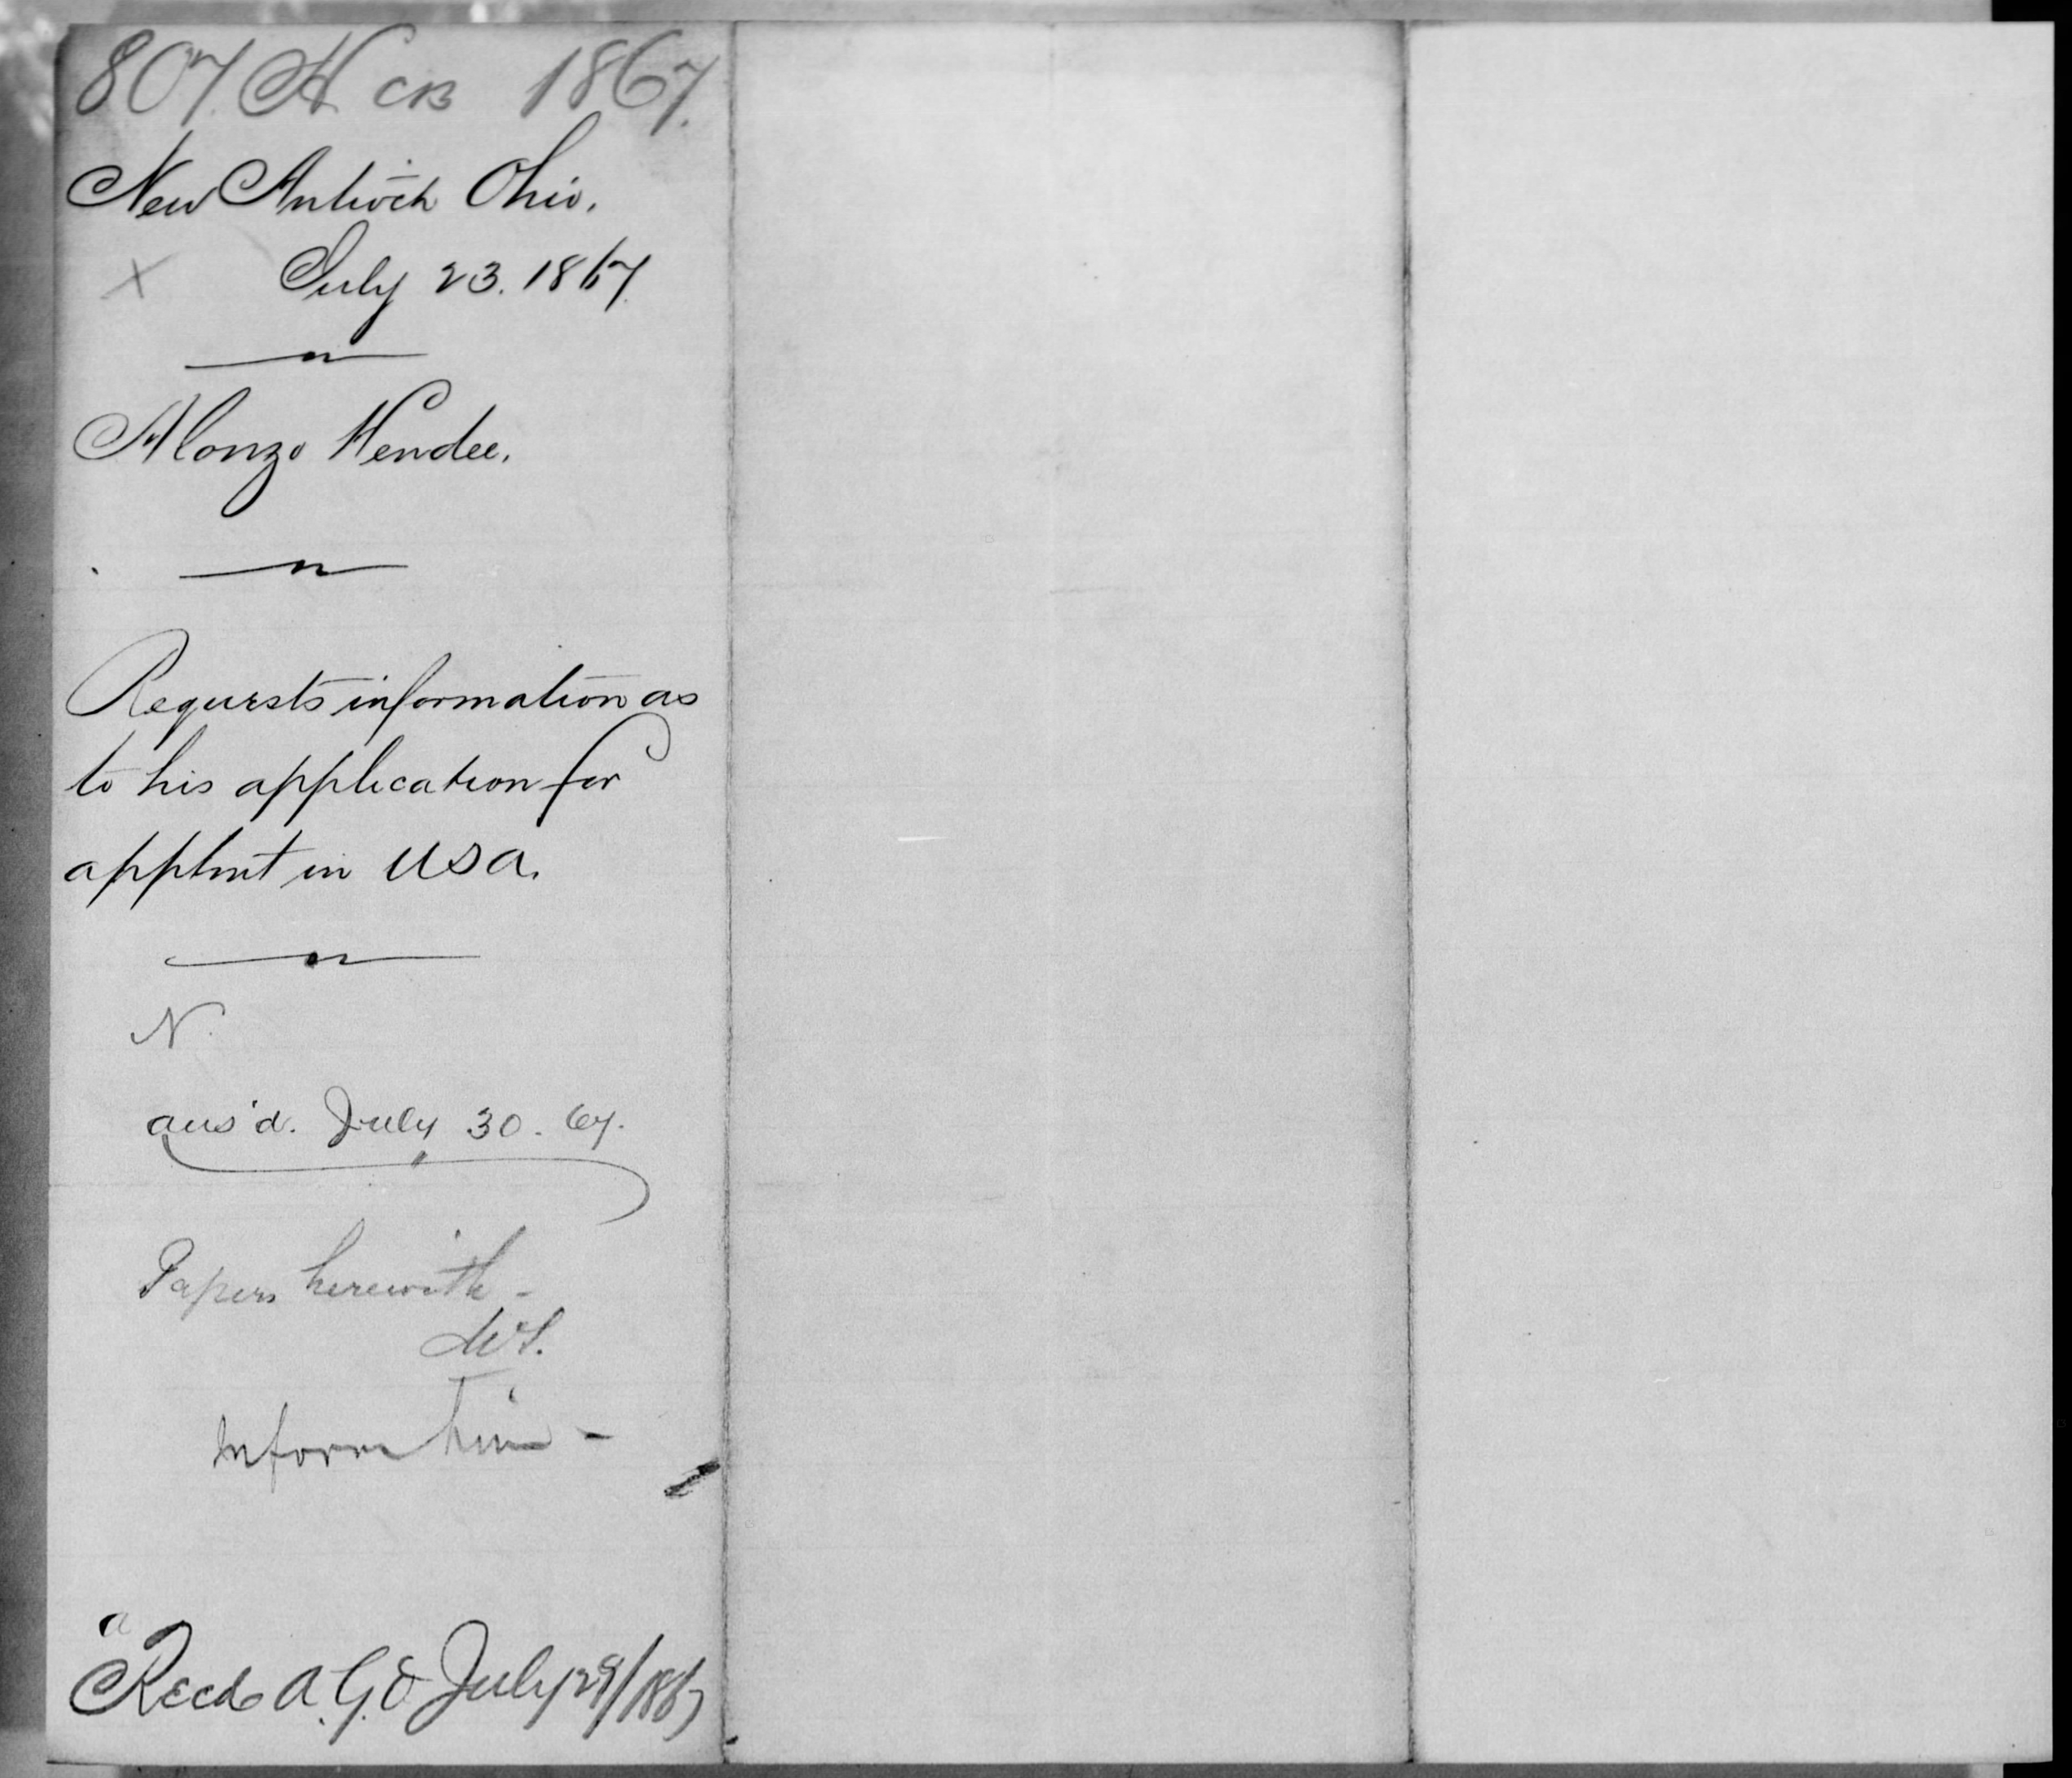 807. H CB 1867.
New Antioch Ohio.
X July 23. 1867.
Alonzo Hendee.
Requests information as
to his application for
apptmt in USA.
N.
ans'd. July 30. 67.
Papers herewith -
Inform him -
a
Recd A.G.O July 29/1867